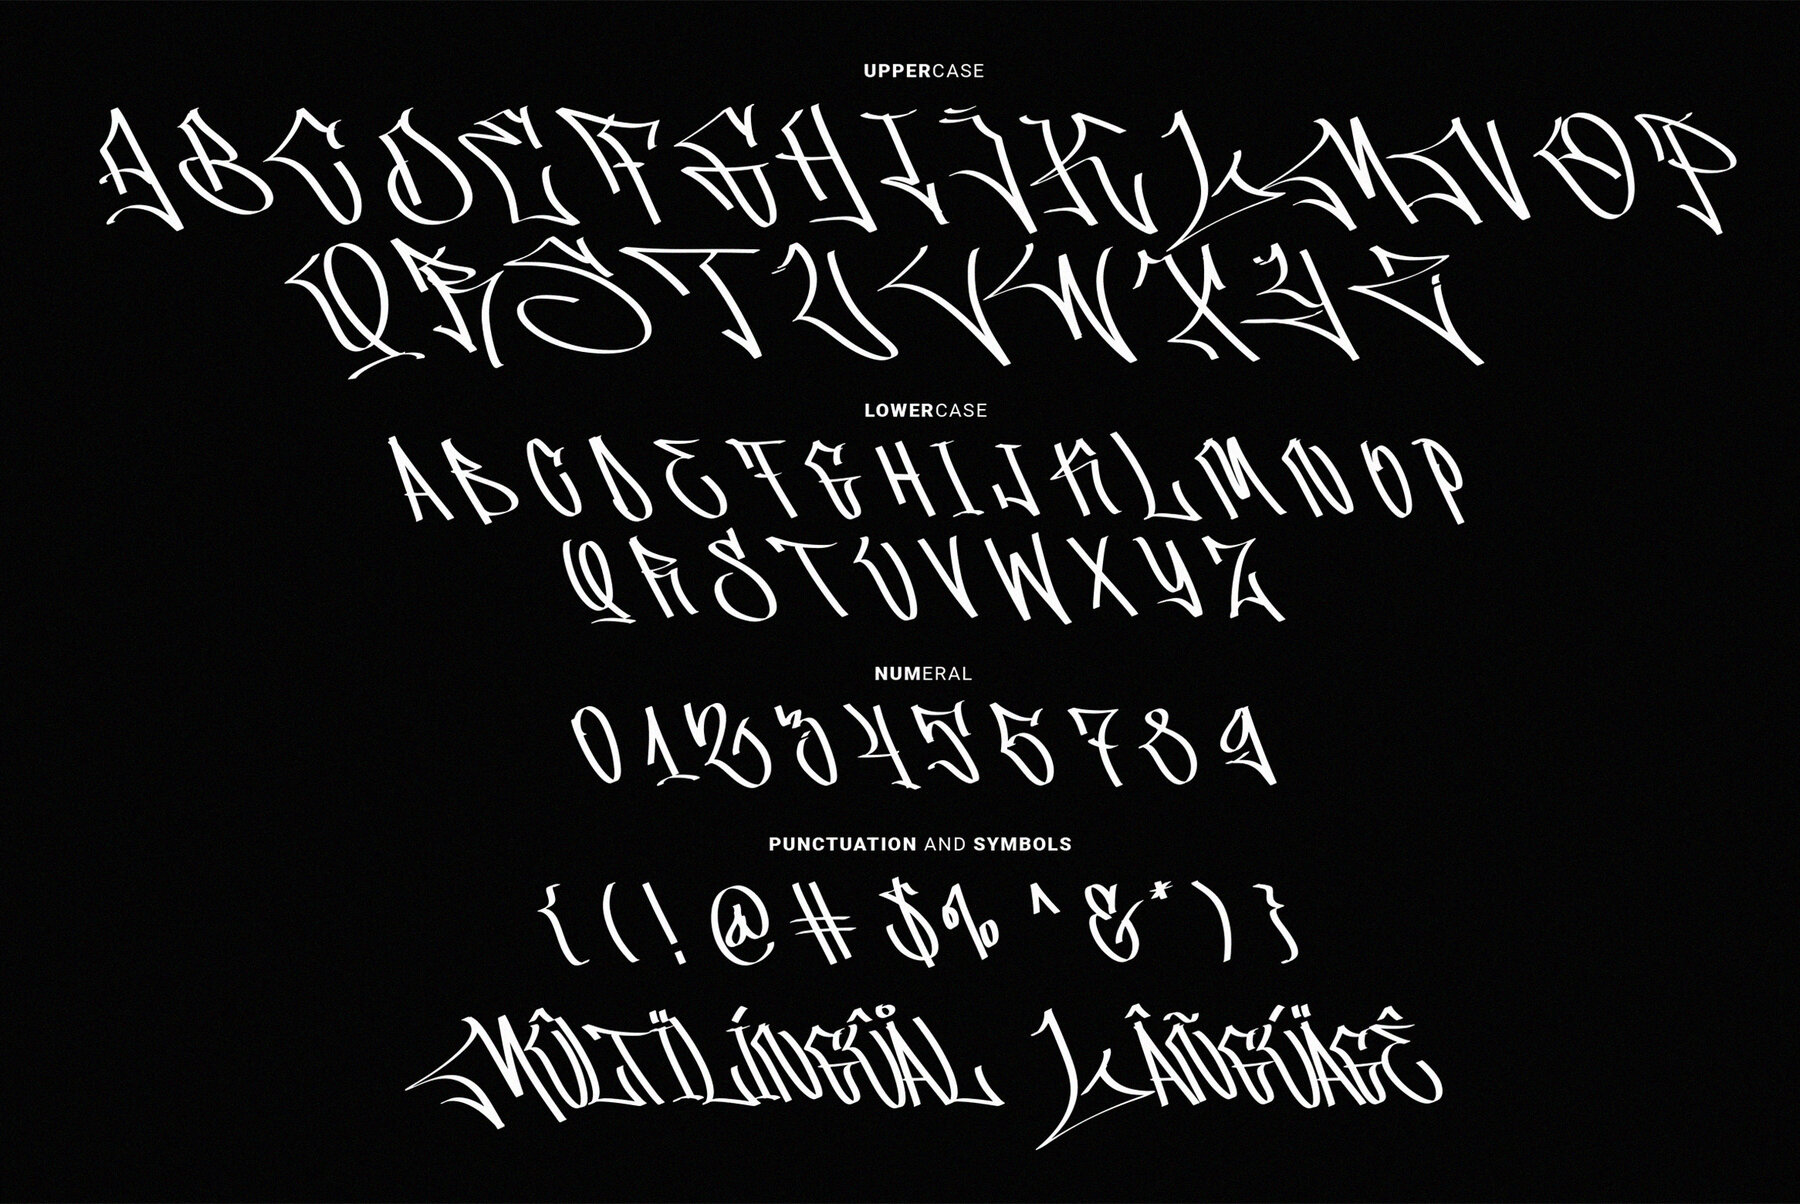 UPPERCASE
ABCDEFGHIJKLMNOP
QRSTUVWXYZ
LOWERCASE
ABCDEFGHIJKLMNOP
QRSTUVWXYZ
NUMERAL
0123456789
PUNCTUATION AND SYMBOLS
{(!@#$%^&*)}
MÛLTÏLÍNGÛÅL LÂÑGÚÄGÊ